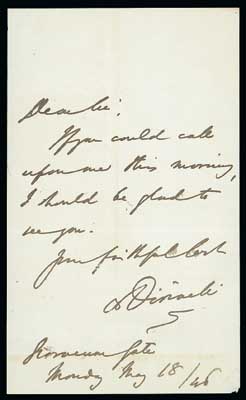 Dear Sir,
If you could call
upon me this morning,
I should be glad to
see you.
Your faithful Servt
D Disraeli
Grosvenor Gate
Monday May 18/46